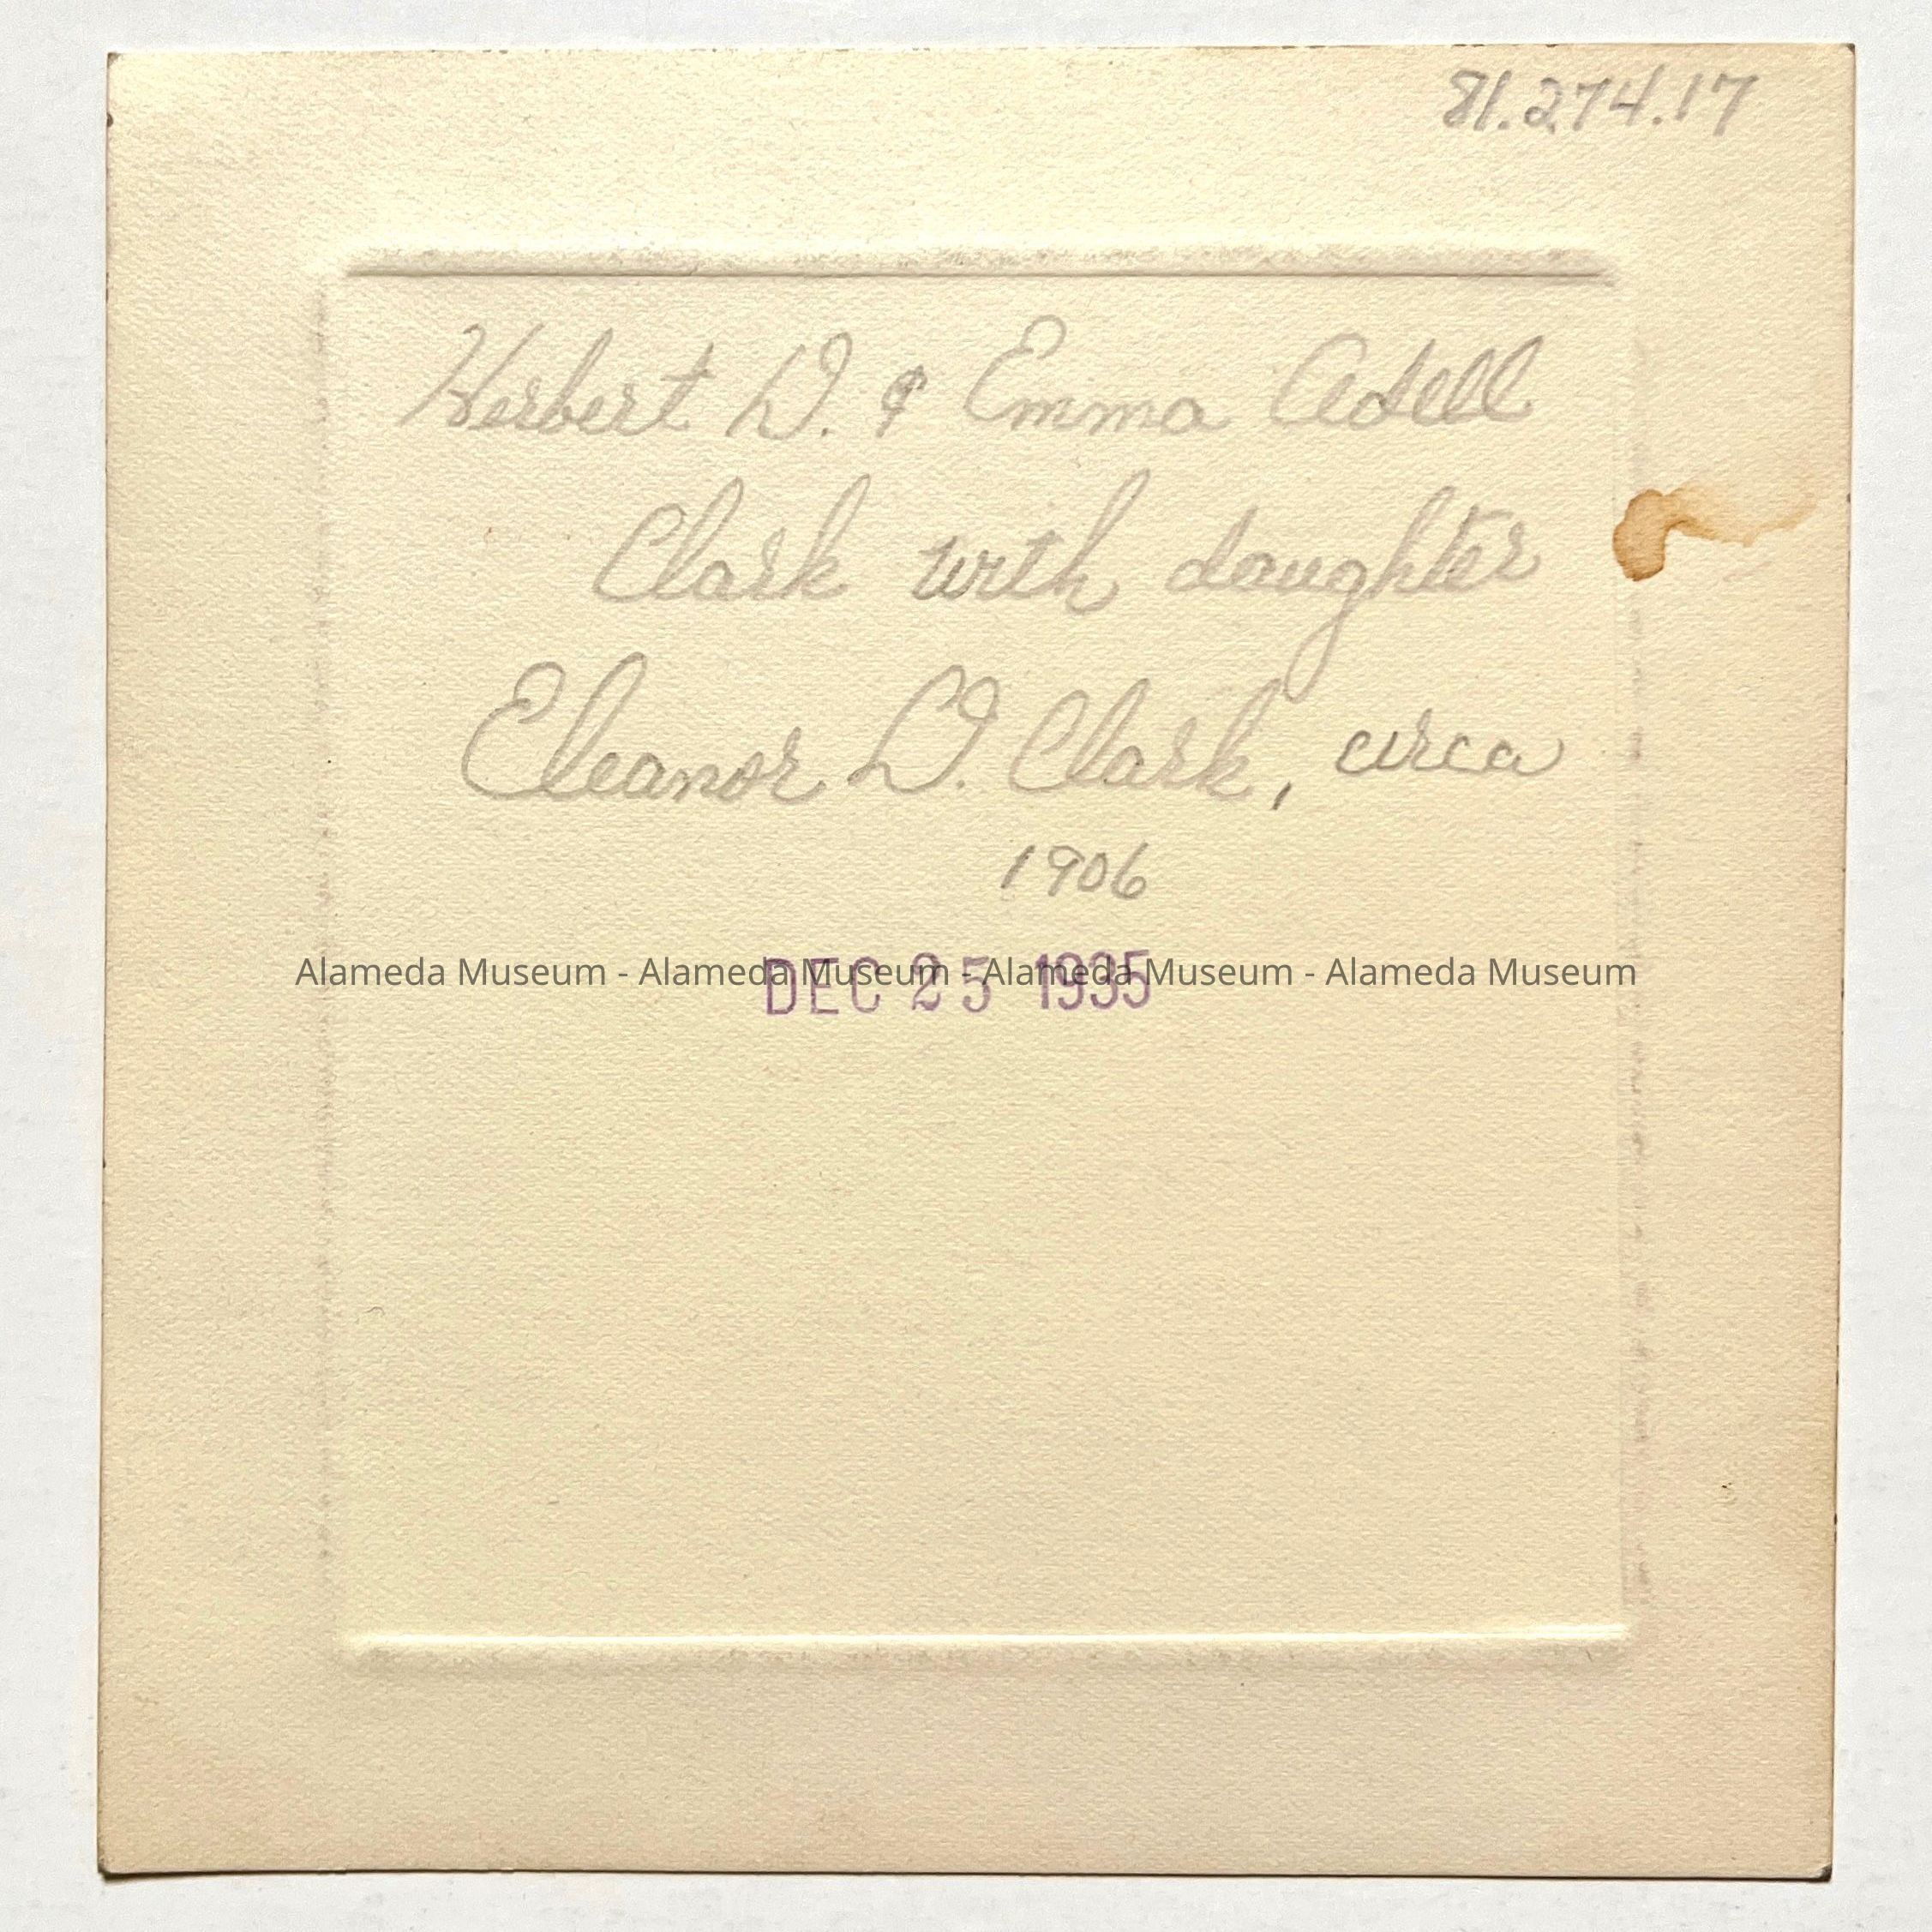 81.274.17
Herbert D. & Emma Adell
Clark with daughter
Eleanor D. Clark, circa
1906
Alameda Museum - Alameda Museum - Alameda Museum - Alameda Museum
DEC 25 1935